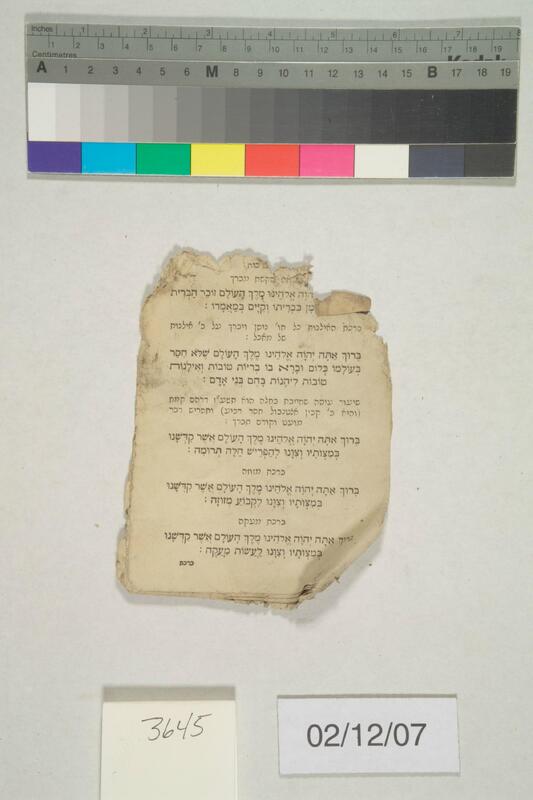 Inches 1 2 3 4 5 6 7 8
Centimetres 1 2 3 4 5 6 7 8 9 10 11 12 13 14 15 16 17 18 19
A 1 2 3 4 5 6 M 8 9 10 11 12 13 14 15 B 17 18 19
יְהֹוָה אֱלֹהֵינוּ מֶלֶךְ הָעוֹלָם זוֹכֵר הַבְּרִית
בִּבְרִיתוֹ וְקַיָּים בְּמַאֲמָרוֹ :
ברכת האילנות כל חו' ניסן ויברך על ב' אילנות
של מאכל :
בָּרוּךְ אַתָּה יְהֹוָה אֱלֹהֵינוּ מֶלֶךְ הָעוֹלָם שֶׁלֹּא חִסַּר
בְּעוֹלָמוֹ כְּלוּם וּבָרָא בוֹ בְּרִיּוֹת טוֹבוֹת וְאִילָנוֹת
טוֹבוֹת לֵיהָנוֹת בָּהֶם בְּנֵי אָדָם :
שיעור עיסה שחייבת בחלה הוא דרהם
חסר רביע) ותפריש דבר
מועט וקודם תברך :
בָּרוּךְ אַתָּה יְהֹוָה אֱלֹהֵינוּ מֶלֶךְ הָעוֹלָם אֲשֶׁר קִדְּשָׁנוּ
בְּמִצְוֹתָיו וְצִוָּנוּ לְהַפְרִישׁ חַלָּה תְּרוּמָה :
ברכת מזוזה
בָּרוּךְ אַתָּה יְהֹוָה אֱלֹהֵינוּ מֶלֶךְ הָעוֹלָם אֲשֶׁר קִדְּשָׁנוּ
בְּמִצְוֹתָיו וְצִוָּנוּ לִקְבּוֹעַ מְזוּזָה :
ברכת מעקה
בָּרוּךְ אַתָּה יְהֹוָה אֱלֹהֵינוּ מֶלֶךְ הָעוֹלָם אֲשֶׁר קִדְּשָׁנוּ
בְּמִצְוֹתָיו וְצִוָּנוּ לַעֲשׂוֹת מַעֲקֶה :
ברכת
3645
02/12/07